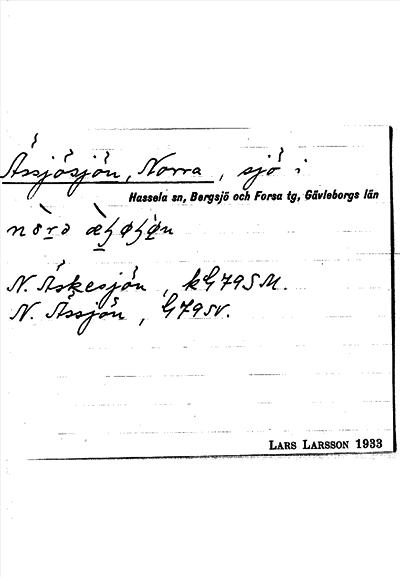 Åssjösjön, Norra, sjö i
Hassela sn, Bergsjö och Forsa tg, Gävleborgs län
N. Åskesjön, kG79SM.
N. Åssjön, G79SV.
LARS LARSSON 1933